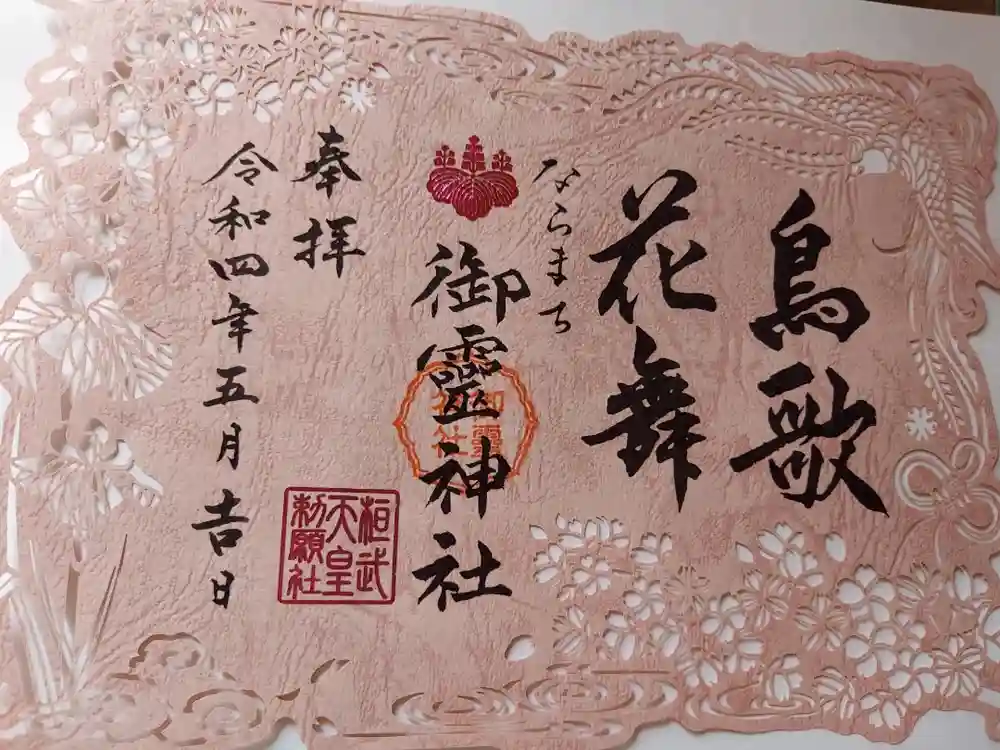 鳥歌
花舞
ならまち
御靈神社
御靈
神社
奉拝
桓武
天皇
勅願社
令和四年五月吉日